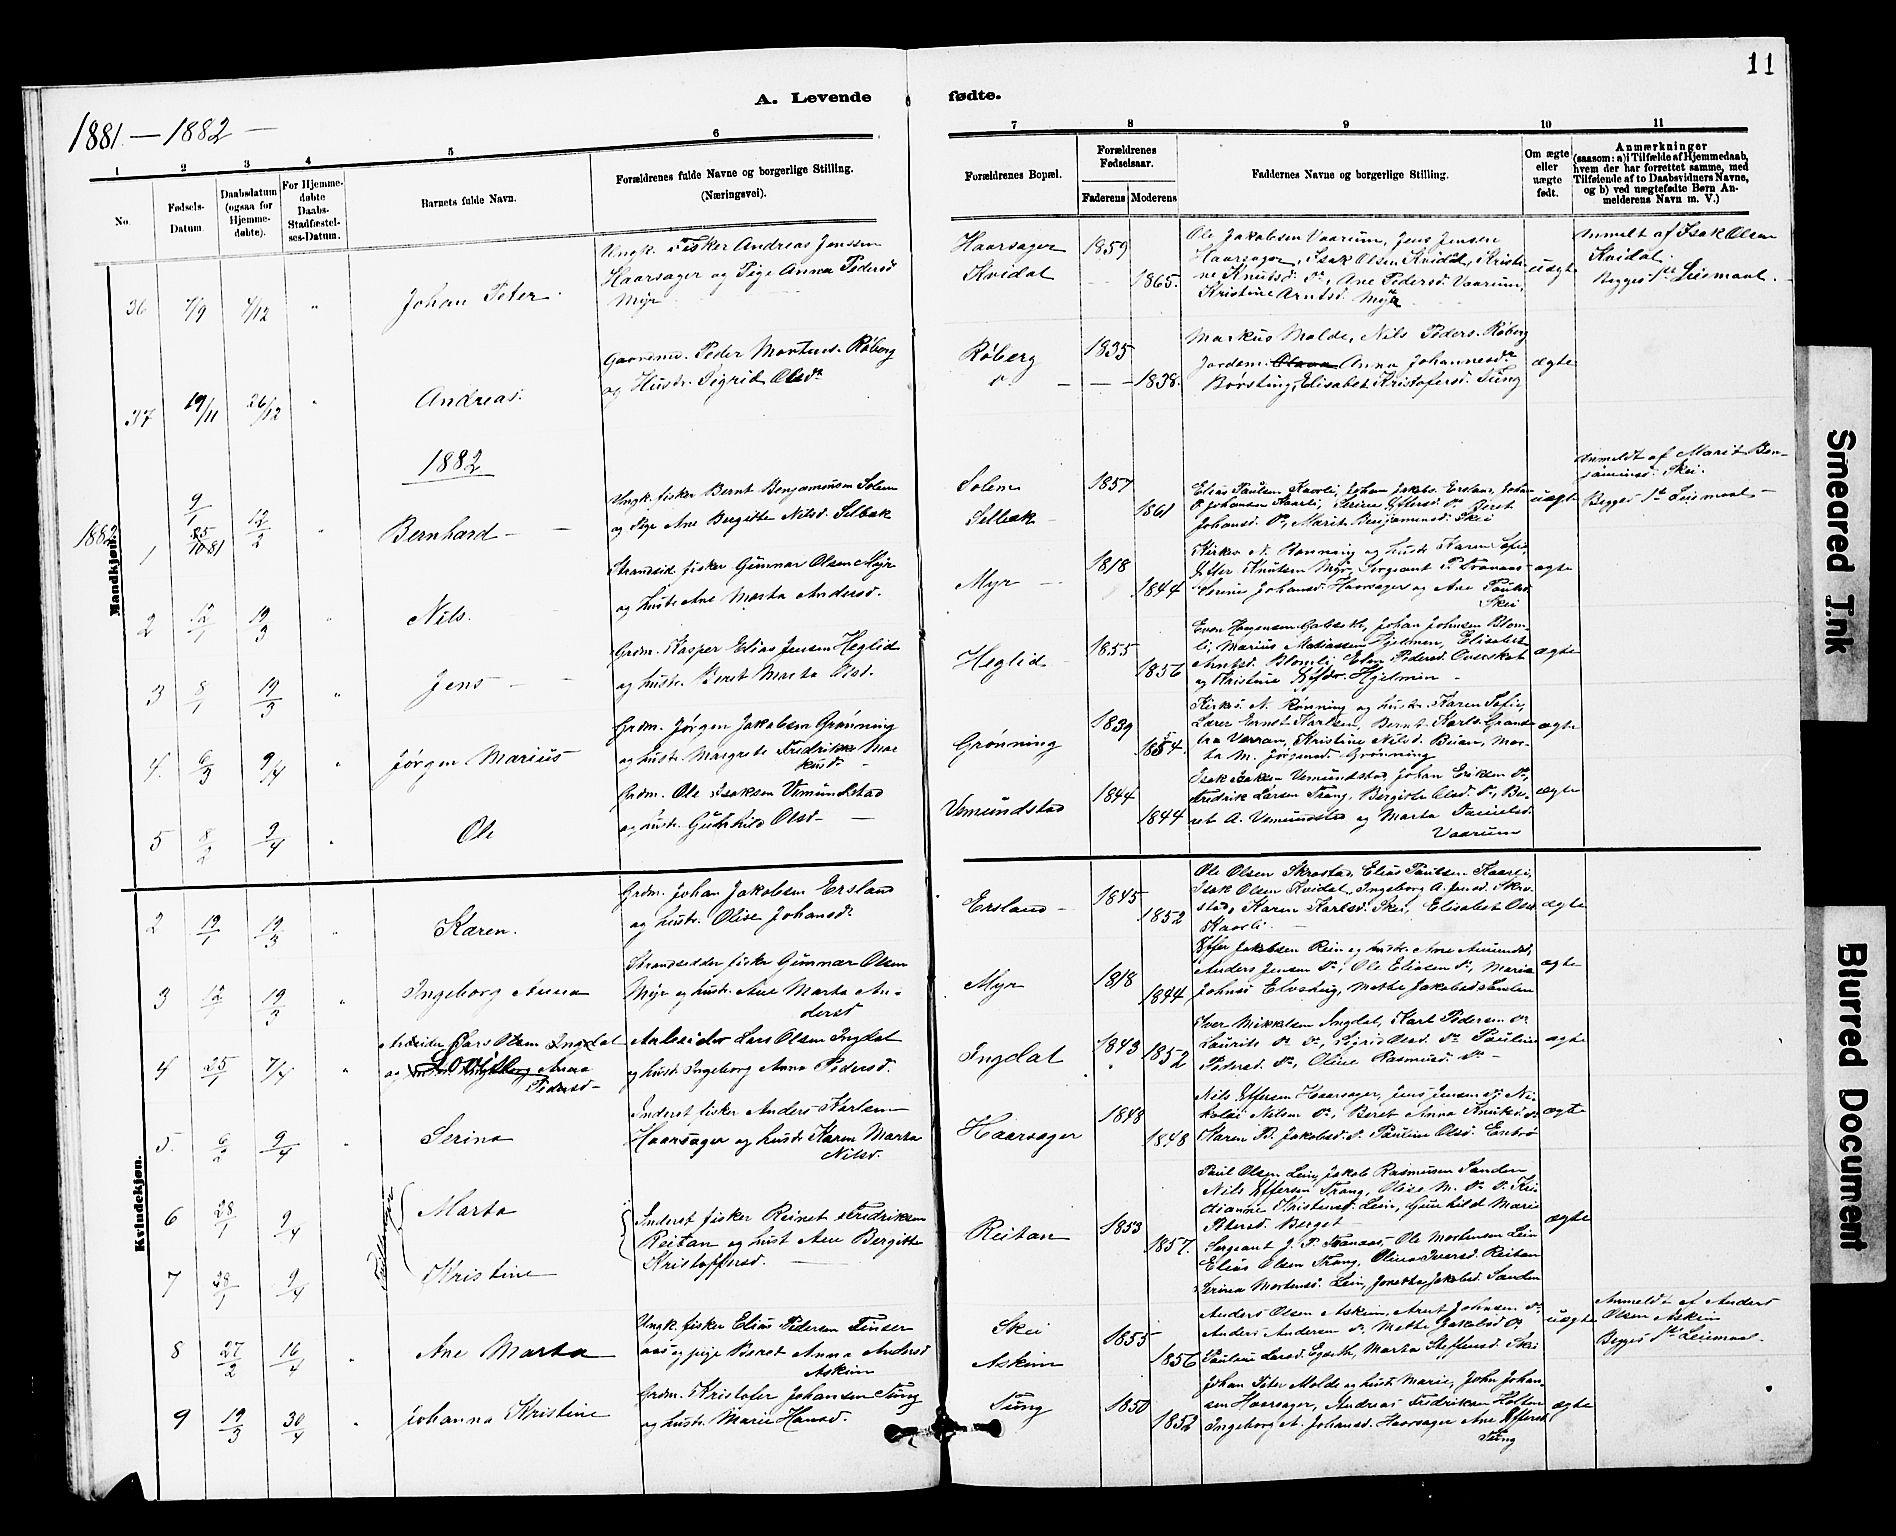 11
A. Levende fødte.
1881 — 1882 —
1 2 3 4 5 6 7 8 9 10 11
No.
Fødsels-
Datum.
Daabsdatum
(ogsaa for
Hjemme-
døbte).
For Hjemme-
døbte
Daabs-
Stadfæstel-
ses-Datum.
Barnets fulde Navn.
Forældrenes fulde Navne og borgerlige Stilling.
(Næringsvei).
Forældrenes Bopæl.
Forældrenes
Fødselsaar.
Faderens Moderens
Faddernes Navne og borgerlige Stilling.
Om ægte
eller
uægte
født.
Anmærkninger
(saasom: a) i Tilfælde af Hjemmedaab,
hvem der har forrettet samme, med
Tilføiende af to Daabsvidners Navne,
og b) ved uægtefødte Børn An-
melderens Navn m. V.)
36 7/9 4/12 " Johan Peter.
Ungk. Fisker Andreas Jenssen
Haarsager og Pige Anna Pedersd
Myr
Haarsager 1859
Kvidal 1865.
Ole Jakobsen Vaarum, Jens Jensen
Haarsager, Isak Olsen Kvidal, Kristi-
ne Knutsd. do, Ane Pedersd. Vaarum,
Kristine Arntsd. Myr
uægte
Anmelt af Isak Olsen
Kvidal.
Begges 1ste Leiermaal.
37 19/11 26/12 " Andreas.
Gaardmd. Peder Mortens. Røberg
og Hustr. Sigrid Olsdr
Røberg 1835
" — — 1838.
Markus Molde, Nils Peders. Røberg
Jordem. Anna Johannesdr
Børsting, Elisabet Kristofersd. Tung
ægte
1882
1882
Mandkjøn.
1 9/1 25/10 81 12/2 " Bernhard —
Ungk. fisker Bernt Benjaminsen Solem
og Pige Ane Bergitte Nilsd. Selbæk
Solem 1857
Selbæk 1861
Elias Paulsen Kaarli, Johan Jakobs. Ersland, Johan
P. Johansen Kaarli, Serine Effersd. do, Beret
Johansd. do, Marit Benjaminsd. Skei
uægte
Anmeldt af Marit Ben-
jaminsd. Skei.
Begges 1ste Leiermaal —
2 12/1 19/3 " Nils.
Strandsid. fisker Gunnar Olsen Myr
og hustr. Ane Marta Andersd.
Myr 1818
1844
Kirkes. N. Rønning og hustr. Karen Sofie,
Effer Knutsen Myr, Sergeant P. Tranaas
Serine Johansd. Haarsager og Ane Paulsd.
Skei
ægte
3 8/1 19/3 " Jens
Grdm. Kasper Elias Jensen Heglid
og hustr. Beret Marta Olsd.
Heglid 1855
1856
Johan Johnsen Blom-
li, Marius Matiassen Hjelmen, Elisabet
Arntsd. Blomli, Elen Pedersd. Overskot
og Kristine Hjelmen —
ægte
4. 6/3 9/4 " Jørgen Marius
Grdm. Jørgen Jakobsen Grønning
og hustr. Margrete Fredrikke Mar-
kusd —
Grønning 1839
1854.
Kirkes. N. Rønning og hustr. Karen Sofie,
Lærer Ernst Karlsen, Bernt Karls. Grand-
tra Verran, Kristine Nilsd. Beian, Mar-
ta M. Jørgensd. Grønning
ægte
5 8/2 9/4 " Ole
Grdm. Ole Isaksen Vemundstad
og hustr. Gunhild Olsd —
Vemundstad 1844
1844
Isak Isaks— Vemundstad, Johan Eriksen do,
Fredrik Larsen Trang, Bergitte Olsd. do, Be-
ret A. Vemundstad og Marta Danielsd.
Vaarum
ægte
Kvindekjøn.
2 19/1 19/3 " Karen.
Grdm. Johan Jakobsen Ersland
og hustr. Oline Johansdr
Ersland — 1845
1852
Ole Olsen Skrostad, Elias Paulsen Kaarli,
Isak Olsen Kvidal, Ingeborg A. Jensd. Skro-
stad, Karen Karlsd. Skei, Elisabet Olsd
Kaarli. —
ægte
3 12/1 19/3 " Ingeborg Anna
Strandsidder fisker Gunnar Olsen
Myr og hustr. Ane Marta An-
dersd
Myr 1818
1844
Effer Jakobsen Rein og hustr. Ane Amundsd,
Anders Jensen do, Ole Eliasen do, Maria
Johnsd Elvshug, Mette Jakobsd
ægte
4 25/1 7/4 "
Arbeider Lars Olsen Ingdal
og Anna
Pedersd —
Arbeider Lars Olsen Ingdal
og hustr. Ingeborg Anna Pedersd.
Ingdal 1843 1852
Iver Mikkelsen Ingdal, Karl Pedersen do
Laurits do do, Sigrid Olsd. do Pauline
Pedersd. do, Oline Rasmusd. do —
ægte
5. 6/2 9/4 " Serina
Inderst fisker Anders Karlsen
Haarsager og hustr. Karen Marta
Nilsd.
Haarsager 1848
1848
Nils Effersen Haarsager, Jens Jensen do, Ni-
kolai Nilsen do, Beret Anna Knutsd do
Karen B. Jakobsd. do Pauline Olsd. Enbrø
ægte
Tvillinger
6 28/1 9/4 Marta
7 28/1 9/4 Kristine
Inderst fisker Reinet Fredriksen
Reitan og hust Ane Bergitte
Kristoffersd. —
Reitan 1853
1857.
Paul Olsen Lein, Jakob Rasmusen Sanden
Nils Effersen Trang, Oline M. do do Kri-
stianne Kristensd. Lein, Gunhild Marie
Petersd. Berget —
Sergeant J. P. Tranaas, Ole Mortensen Lein
Elias Olsen Trang, Olina Iversd. Reitan
Serina Mortensd. Lein, Jonetta Jakobsd. Sanden
ægte
8 27/2 16/4 " Ane Marta
Ungk. fisker Elias Pedersen Finser
aas og pige Beret Anna Andersd
Askim
Skei 1855
Askim 1856
Anders Olsen Askim, Arnt Johnsen do
Anders Andersen do, Mette Jakobsd do
Pauline Larsd. Marta Steffensd. Skei
uægte
Anmeldt af Anders
Olsen Askim
Begges 1ste Leiermaal.
9 19/3 30/4 " Johanna Kristine
Grdm. Kristofer Johansen Tung
og hustr. Marie Hansd.
Tung 1850
1852
Johan Peter Molde og hust Marie, John Johan-
sen Haarsager, Andreas Fredriksen Holten
Ingeborg A. Johansd. Haarsager Ane Effersd
Tung
ægte
Smeared Ink
Blurred Document